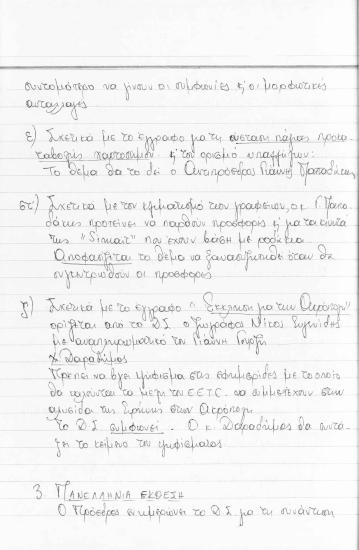 συντομότερο να γίνουν οι συμφωνίες κ' οι μορφωτικές
ανταλλαγές
ε) Σχετικά με το έγγραφο για τη σύσταση πάγιας προκα-
ταβολής χαρτοσήμου κ' τον ορισμό υπολόγου:
Το θέμα θα το δει ο Αντιπρόεδρος Γιάννης Παπαδάκης
στ) Σχετικά με τον κλιματισμό των γραφείων, ο κ. Παπα-
δάκης προτείνει να παρθούν προσφορές κ' για τα
της που έχουν βάση με ροδάκια
Αποφασίζεται το θέμα να ξανασυζητηθεί όταν θα
συγκεντρωθούν οι προσφορές
ζ) Σχετικά με το έγγραφο "Έκκληση για την Ακρόπολη"
ορίζεται από το Δ.Σ. ο ζωγράφος Νίκος
με αναπληρωματικό τον Γιάννη
Χ. Δαραδήμος
Πρέπει να βγει ψήφισμα στις εφημερίδες με το οποίο
θα καλούνται τα μέλη του ΕΕΤΕ να συμμετέχουν στην
αλυσίδα της Ειρήνης στην Ακρόπολη
Το Δ.Σ. συμφωνεί. Ο κ. Δαραδήμος θα συντά-
ξει το κείμενο του ψηφίσματος
3. ΠΑΝΕΛΛΗΝΙΑ ΕΚΘΕΣΗ
Ο Πρόεδρος ενημερώνει το Δ.Σ για τη συνάντηση